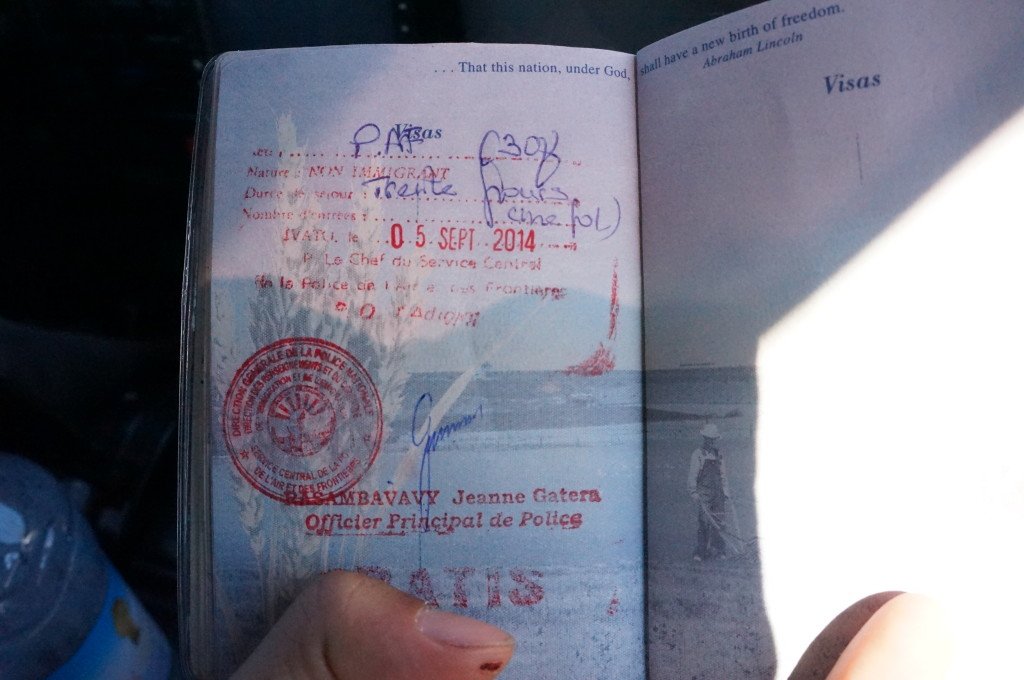 ...That this nation, under God,
Visas
P.AF
Nature : NON IMMIGRANT
Durée de séjour : Trente jours
Nombre d'entrées :
IVATO, le 05 SEPT 2014
P. Le Chef du Service Central
de la Police de l'Air et des Frontières
PO l'Adjoint
DIRECTION GENERALE DE LA POLICE NATIONALE
SERVICE CENTRAL DE LA POLICE
DE L'AIR ET DES FRONTIERES
RASAMBAVAVY Jeanne Gatera
Officier Principal de Police
RATIS
shall have a new birth of freedom.
Abraham Lincoln
Visas